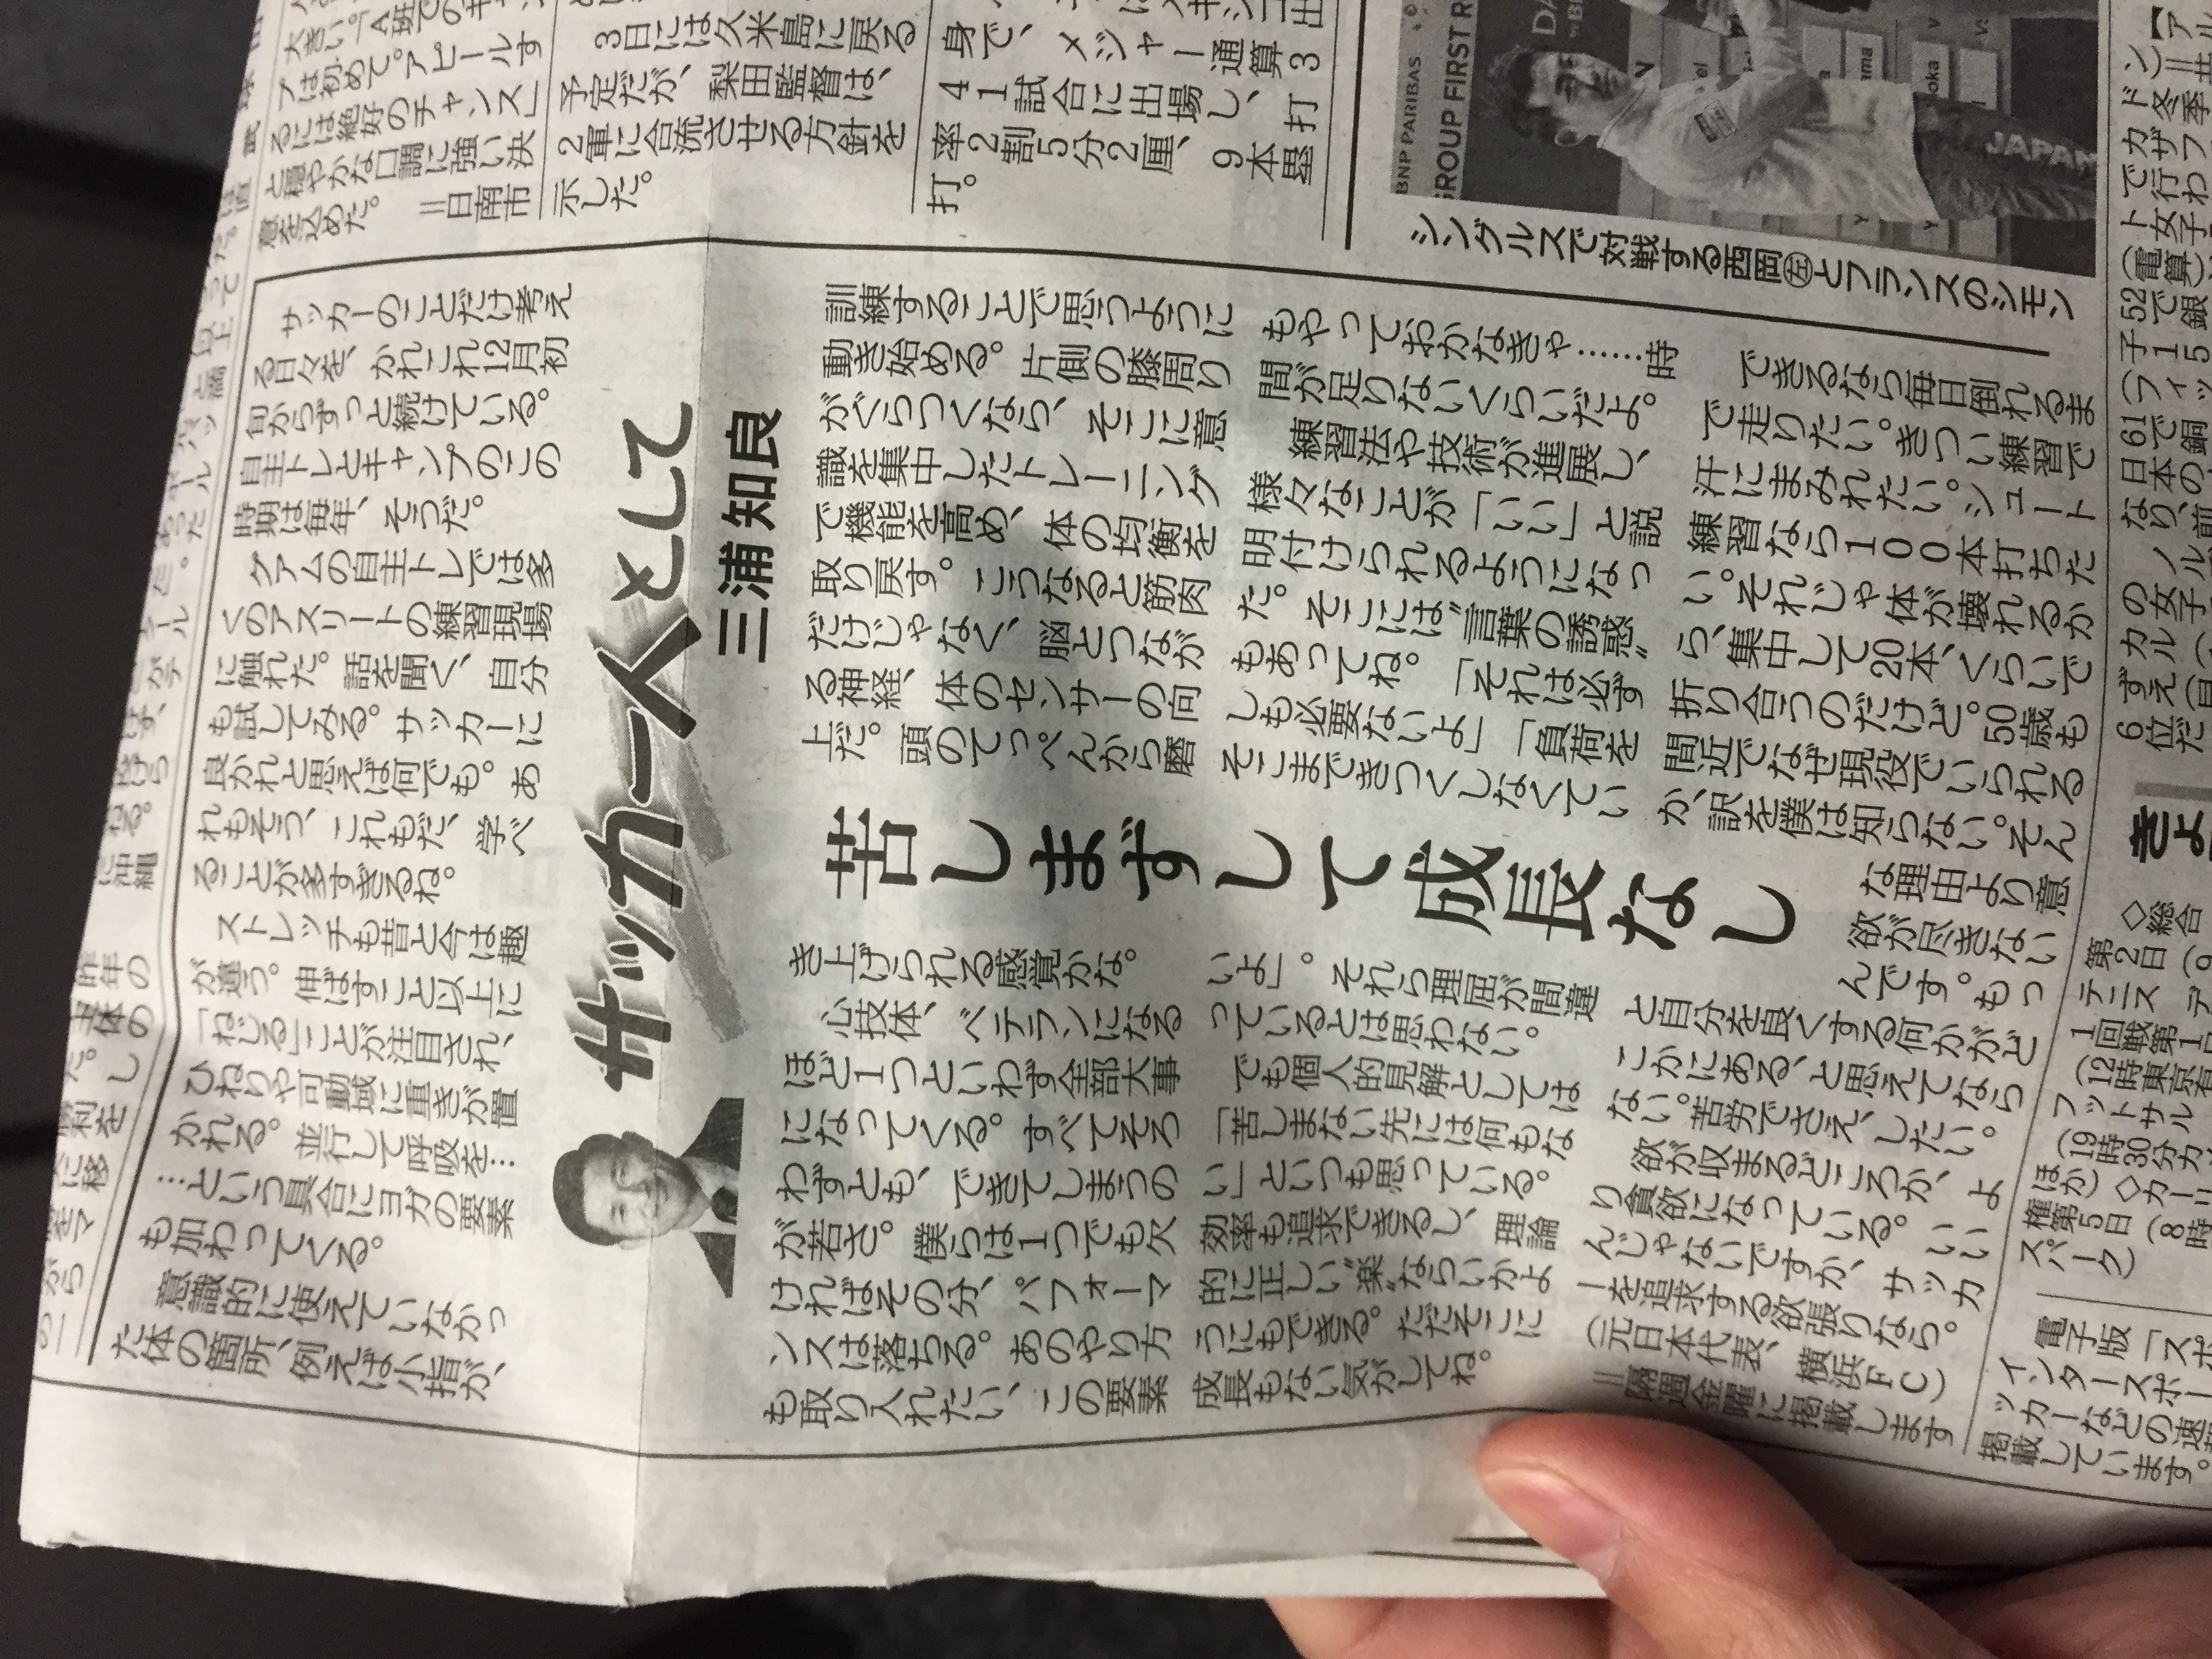 プは初めて。アピールす
るには絶好のチャンス」
と穏やかな口調に強い決
意を込めた。
＝日南市
3日には久米島に戻る
予定だが、梨田監督は、
2軍に合流させる方針を
示した。
身で、メジャー通算3
41試合に出場し、打
率2割5分2厘、9本塁
打。
BNP PARIBAS
GROUP FIRST R
JAPAN
シングルスで対戦する西岡㊧とフランスのシモン
サッカー人として
三浦知良
苦しまずして成長なし
サッカーのことだけ考え
る日々を、かれこれ12月初
旬からずっと続けている。
自主トレとキャンプのこの
時期は毎年、そうだ。
グアムの自主トレでは多
くのアスリートの練習現場
に触れた。話を聞く、自分
も試してみる。サッカーに
良かれと思えば何でも。あ
れもそう、これもだ、学べ
ることが多すぎるね。
ストレッチも昔と今は趣
が違う。伸ばすこと以上に
「ねじる」ことが注目され、
ひねりや可動域に重きが置
かれる。並行して呼吸を…
…という具合にヨガの要素
も加わってくる。
意識的に使えていなかっ
た体の箇所、例えば小指が、
訓練することで思うように
動き始める。片側の膝周り
がぐらつくなら、そこに意
識を集中したトレーニング
で機能を高め、体の均衡を
取り戻す。こうなると筋肉
だけじゃなく、脳とつなが
る神経、体のセンサーの向
上だ。頭のてっぺんから磨
き上げられる感覚かな。
心技体、ベテランになる
ほど1つといわず全部大事
になってくる。すべてそろ
わずとも、できてしまうの
が若さ。僕らは1つでも欠
ければその分、パフォーマ
ンスは落ちる。あのやり方
も取り入れたい、この要素
もやっておかなきゃ……時
間が足りないくらいだよ。
練習法や技術が進展し、
様々なことが「いい」と説
明付けられるようになっ
た。そこには“言葉の誘惑”
もあってね。「それは必ず
しも必要ないよ」「負荷を
そこまできつくしなくてい
いよ」。それら理屈が間違
っているとは思わない。
でも個人的見解としては
「苦しまない先には何もな
い」といつも思っている。
効率も追求できるし、理論
的に正しい“楽”ならいかよ
うにもできる。ただそこに
成長もない気がしてね。
できるなら毎日倒れるま
で走りたい。きつい練習で
汗にまみれたい。シュート
練習なら100本打ちた
い。それじゃ体が壊れるか
ら、集中して20本、くらいで
折り合うのだけど。50歳も
間近でなぜ現役でいられる
か、訳を僕は知らない。そん
な理由より意
欲が尽きない
んです。もっ
と自分を良くする何かがど
こかにある、と思えてなら
ない。苦労でさえ、したい。
欲が収まるどころか、よ
り貪欲になっている。いい
んじゃないですか、サッカ
ーを追求する欲張りなら。
（元日本代表、横浜FC）
＝隔週金曜に掲載します
きょ
◇総合
第2日（9
テニス　デ
1回戦第1日
フットサル
（19時30分
ほか）◇カー
権第5日（8時
スパーク）
電子版「スポ
インタースポー
ッカーなどの速
掲載しています。